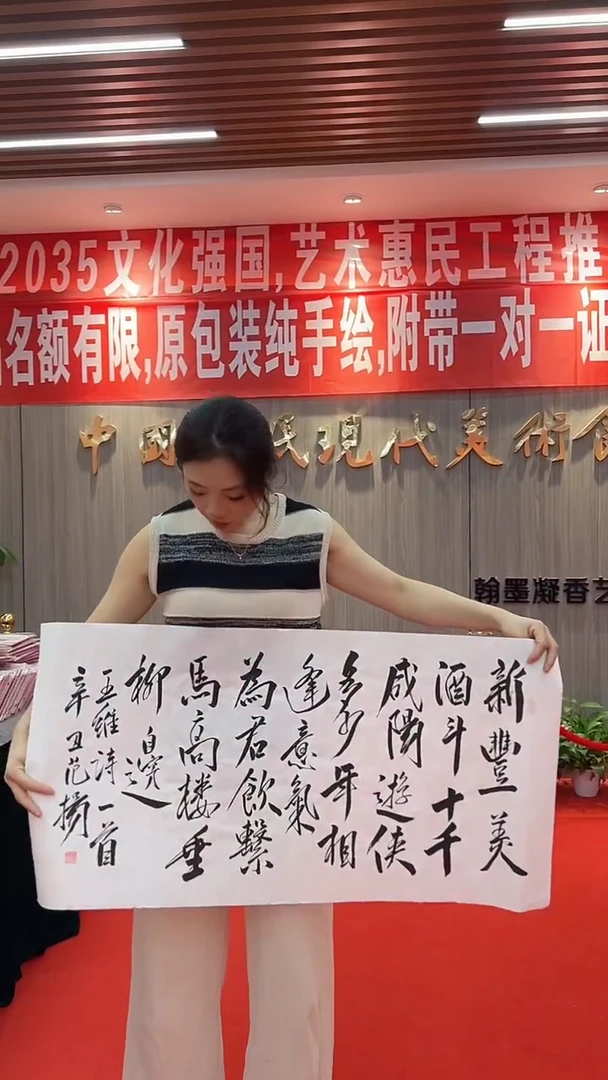 2035文化强国,艺术惠民工程推
名额有限,原包装纯手绘,附带一对一证
中国 民現代美術館
翰墨凝香艺
新豐美
酒斗十千
咸陽遊俠
多少年相
逢意氣
為君飲繫
馬高樓垂
柳邊
王維詩一首
辛丑范揚